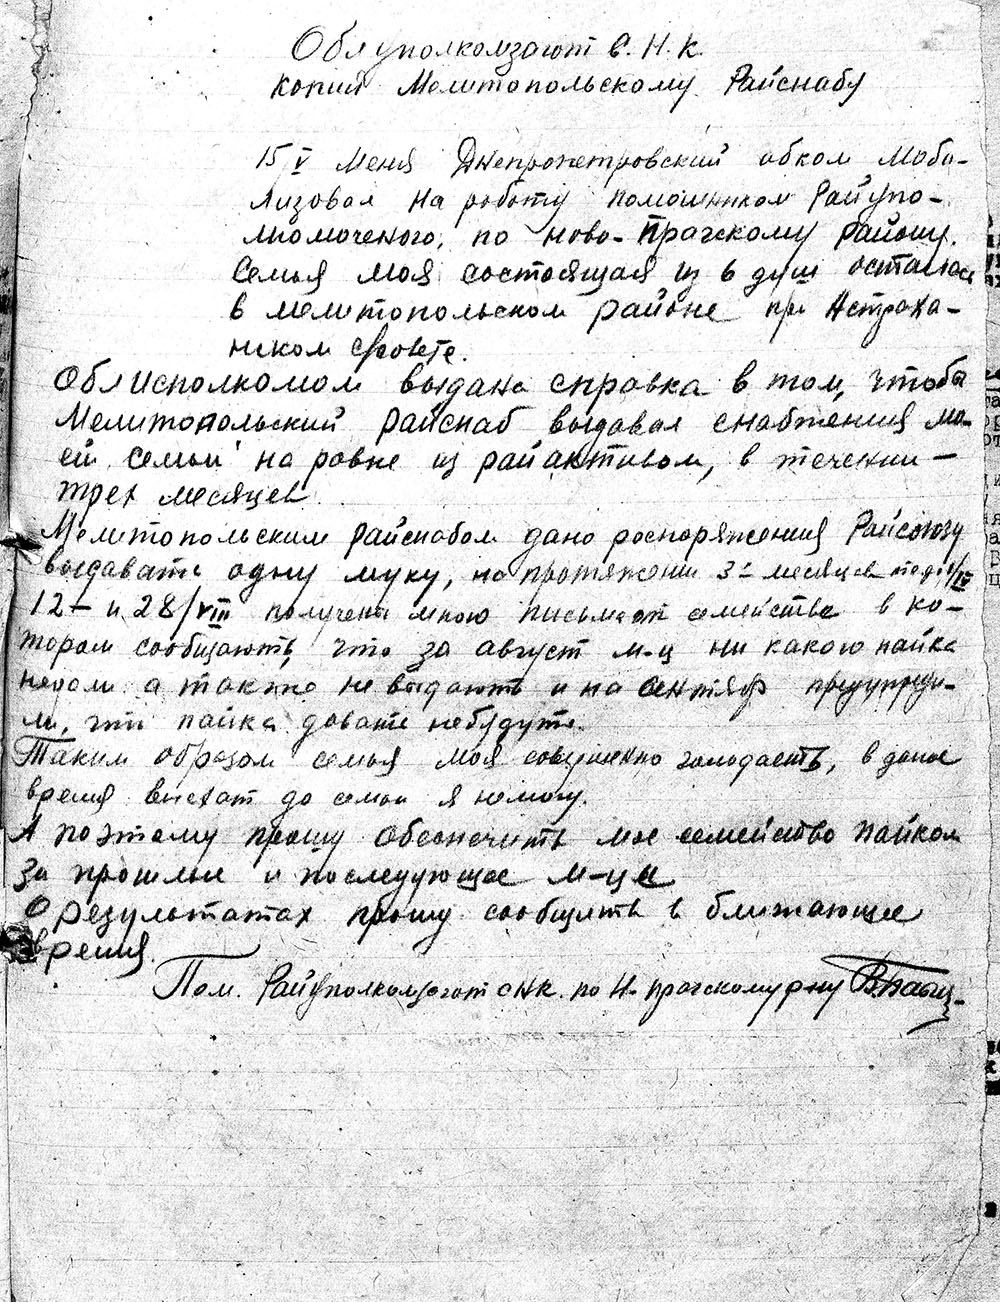 Облуполкомзагот С.Н.К.
копия Мелитопольскому Райснабу
15/V меня Днепропетровский обком моби-
лизовал на работу помошником Райупо-
лномоченого, по Ново-Прагскому району.
Семья моя состоящая из 6 душ осталась
в мелитопольском районе при Астраха-
нском с/совете.
Облисполкомом выдана справка в том, чтобы
Мелитопольский райснаб выдавал снабжения мо-
ей семьи на ровне из райактивом, в течении
трех месяцев
Мелитопольским райснабом дано роспоряжения Райсоюзу
выдавать одну муку, на протяжении 3х месяцев
12 – и 28/VIII получены мною письма от семейства в ко-
тором сообщають, что за август м-ц ни какого пайка
недали а также не выдають и на сентябр предупреди-
ли, что пайка давать небудуть.
Таким образом семья моя совершенно голодаеть, в даное
время выехат до семьи я немогу.
А поэтому прошу обеспечить мое семейство пайком
за прошлые и последующее м-цы
О результатах прошу сообщить в ближающее
время.
Пом. Райуполкомзагот СНК. по Н-Прагскому р-ну